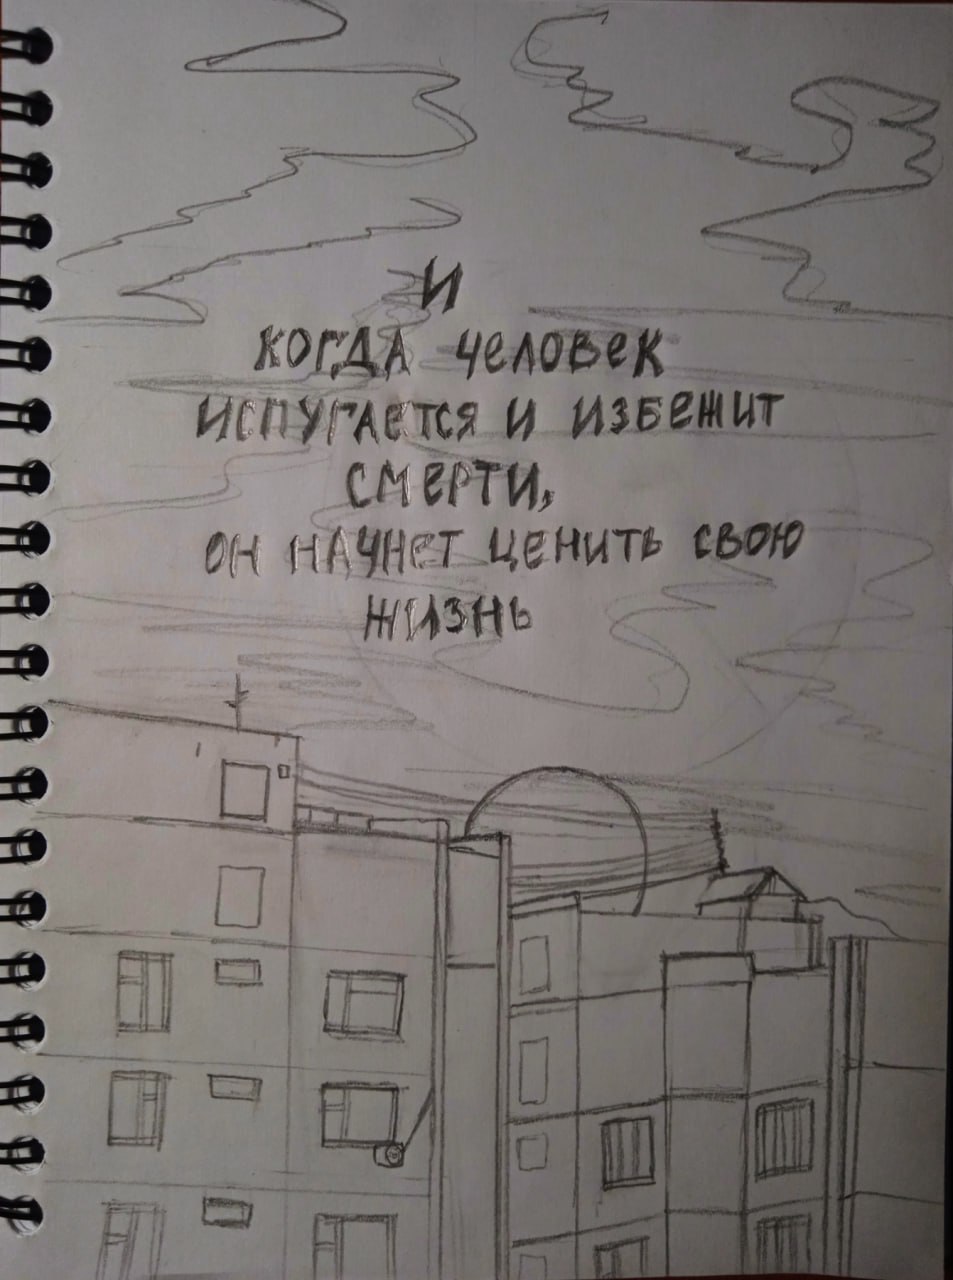 И
КОГДА ЧЕЛОВЕК
ИСПУГАЕТСЯ И ИЗБЕЖИТ
СМЕРТИ,
ОН НАЧНЕТ ЦЕНИТЬ СВОЮ
ЖИЗНЬ